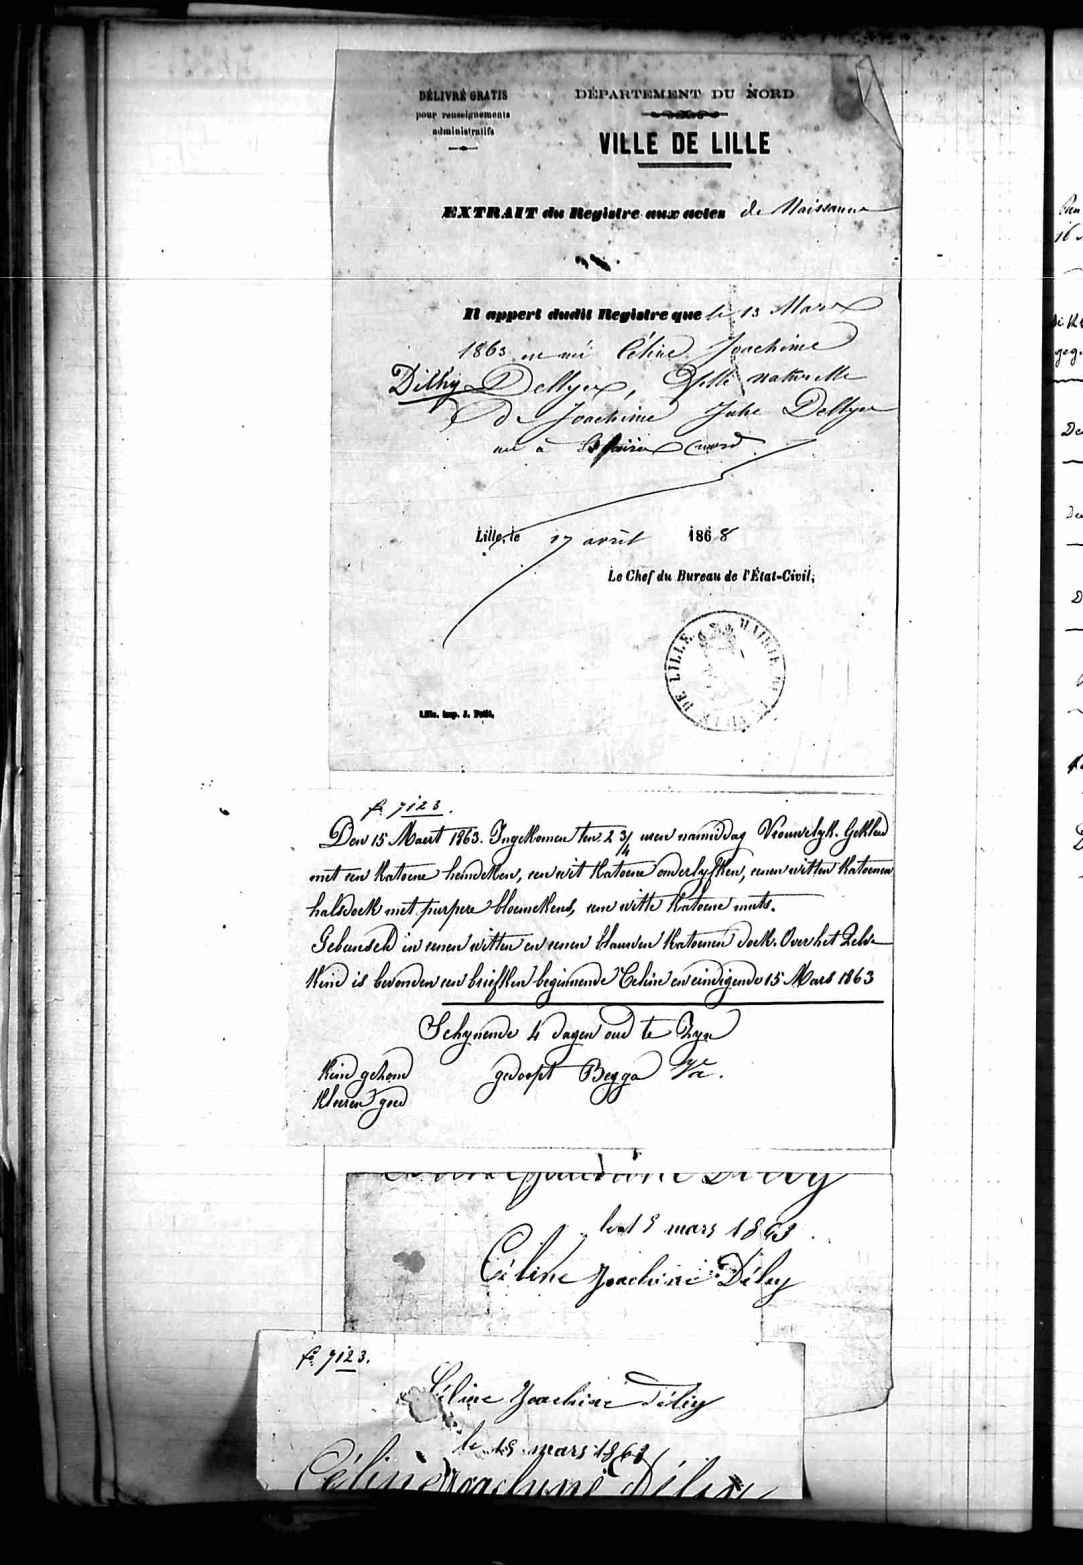 DÉLIVRÉ GRATIS
pour renseignements
administratifs
DÉPARTEMENT DU NORD
VILLE DE LILLE
EXTRAIT du Registre aux actes de Naissance
Il appert dudit Registre que le 13 Mars
1863 est né Céline Joachime
Dilhy Delhye, fille naturelle
de Joachime Julie Delhye
née à (nord)
Lille, le 17 avril 1868
Le Chef du Bureau de l'État-Civil,
MAIRIE DE LA VILLE DE LILLE
Lille, imp. J. Petit,
fo 7123.
Den 15 Maert 1863. Ingekomen ten 2 3/4 uren namiddag Vrouwelyk. Gekleed
met een katoene hemdeken, een wit katoene onderlyfken, eenen witten katoenen
halsdoek met purpere bloemekens, eene witte katoene muts.
Gebunseld in eenen witten en eenen blauwen katoenen doek. Over het Zelve
Kind is bevonden een briefken beginnende Celine en eindigende 15 Mars 1863
Schynende 4 dagen oud te Zyn
Kind gezond gedoopt Begga
kleeren goed
le 15 mars 1863
Céline Joachine Déliy
fo 7123.
Céline Joachine Déliy
le 15 mars 1863
Céline Joachine Déliy